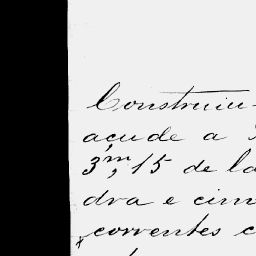 Construiu-
açude a
3,m15 de la
dra e cim
correntes c